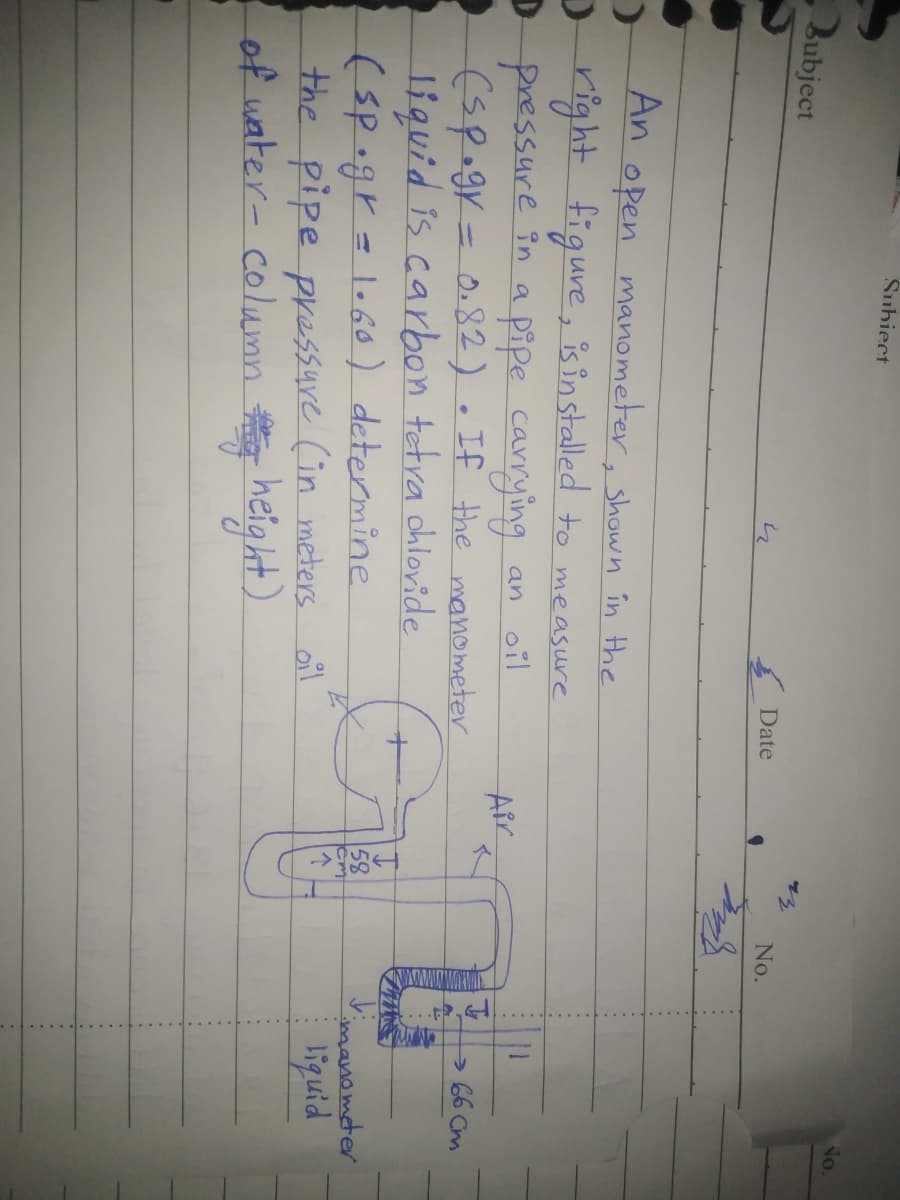 Subject
Subject Date No.
No.
An open manometer, shown in the
right figure, is installed to measure
pressure in a pipe carrying an oil
(sp.gr = 0.82). If the manometer
liquid is carbon tetra chloride
(sp.gr = 1.60) determine
the pipe pressure (in meters
of water - column height)
Air
66 cm
58
cm
oil
manometer
liquid